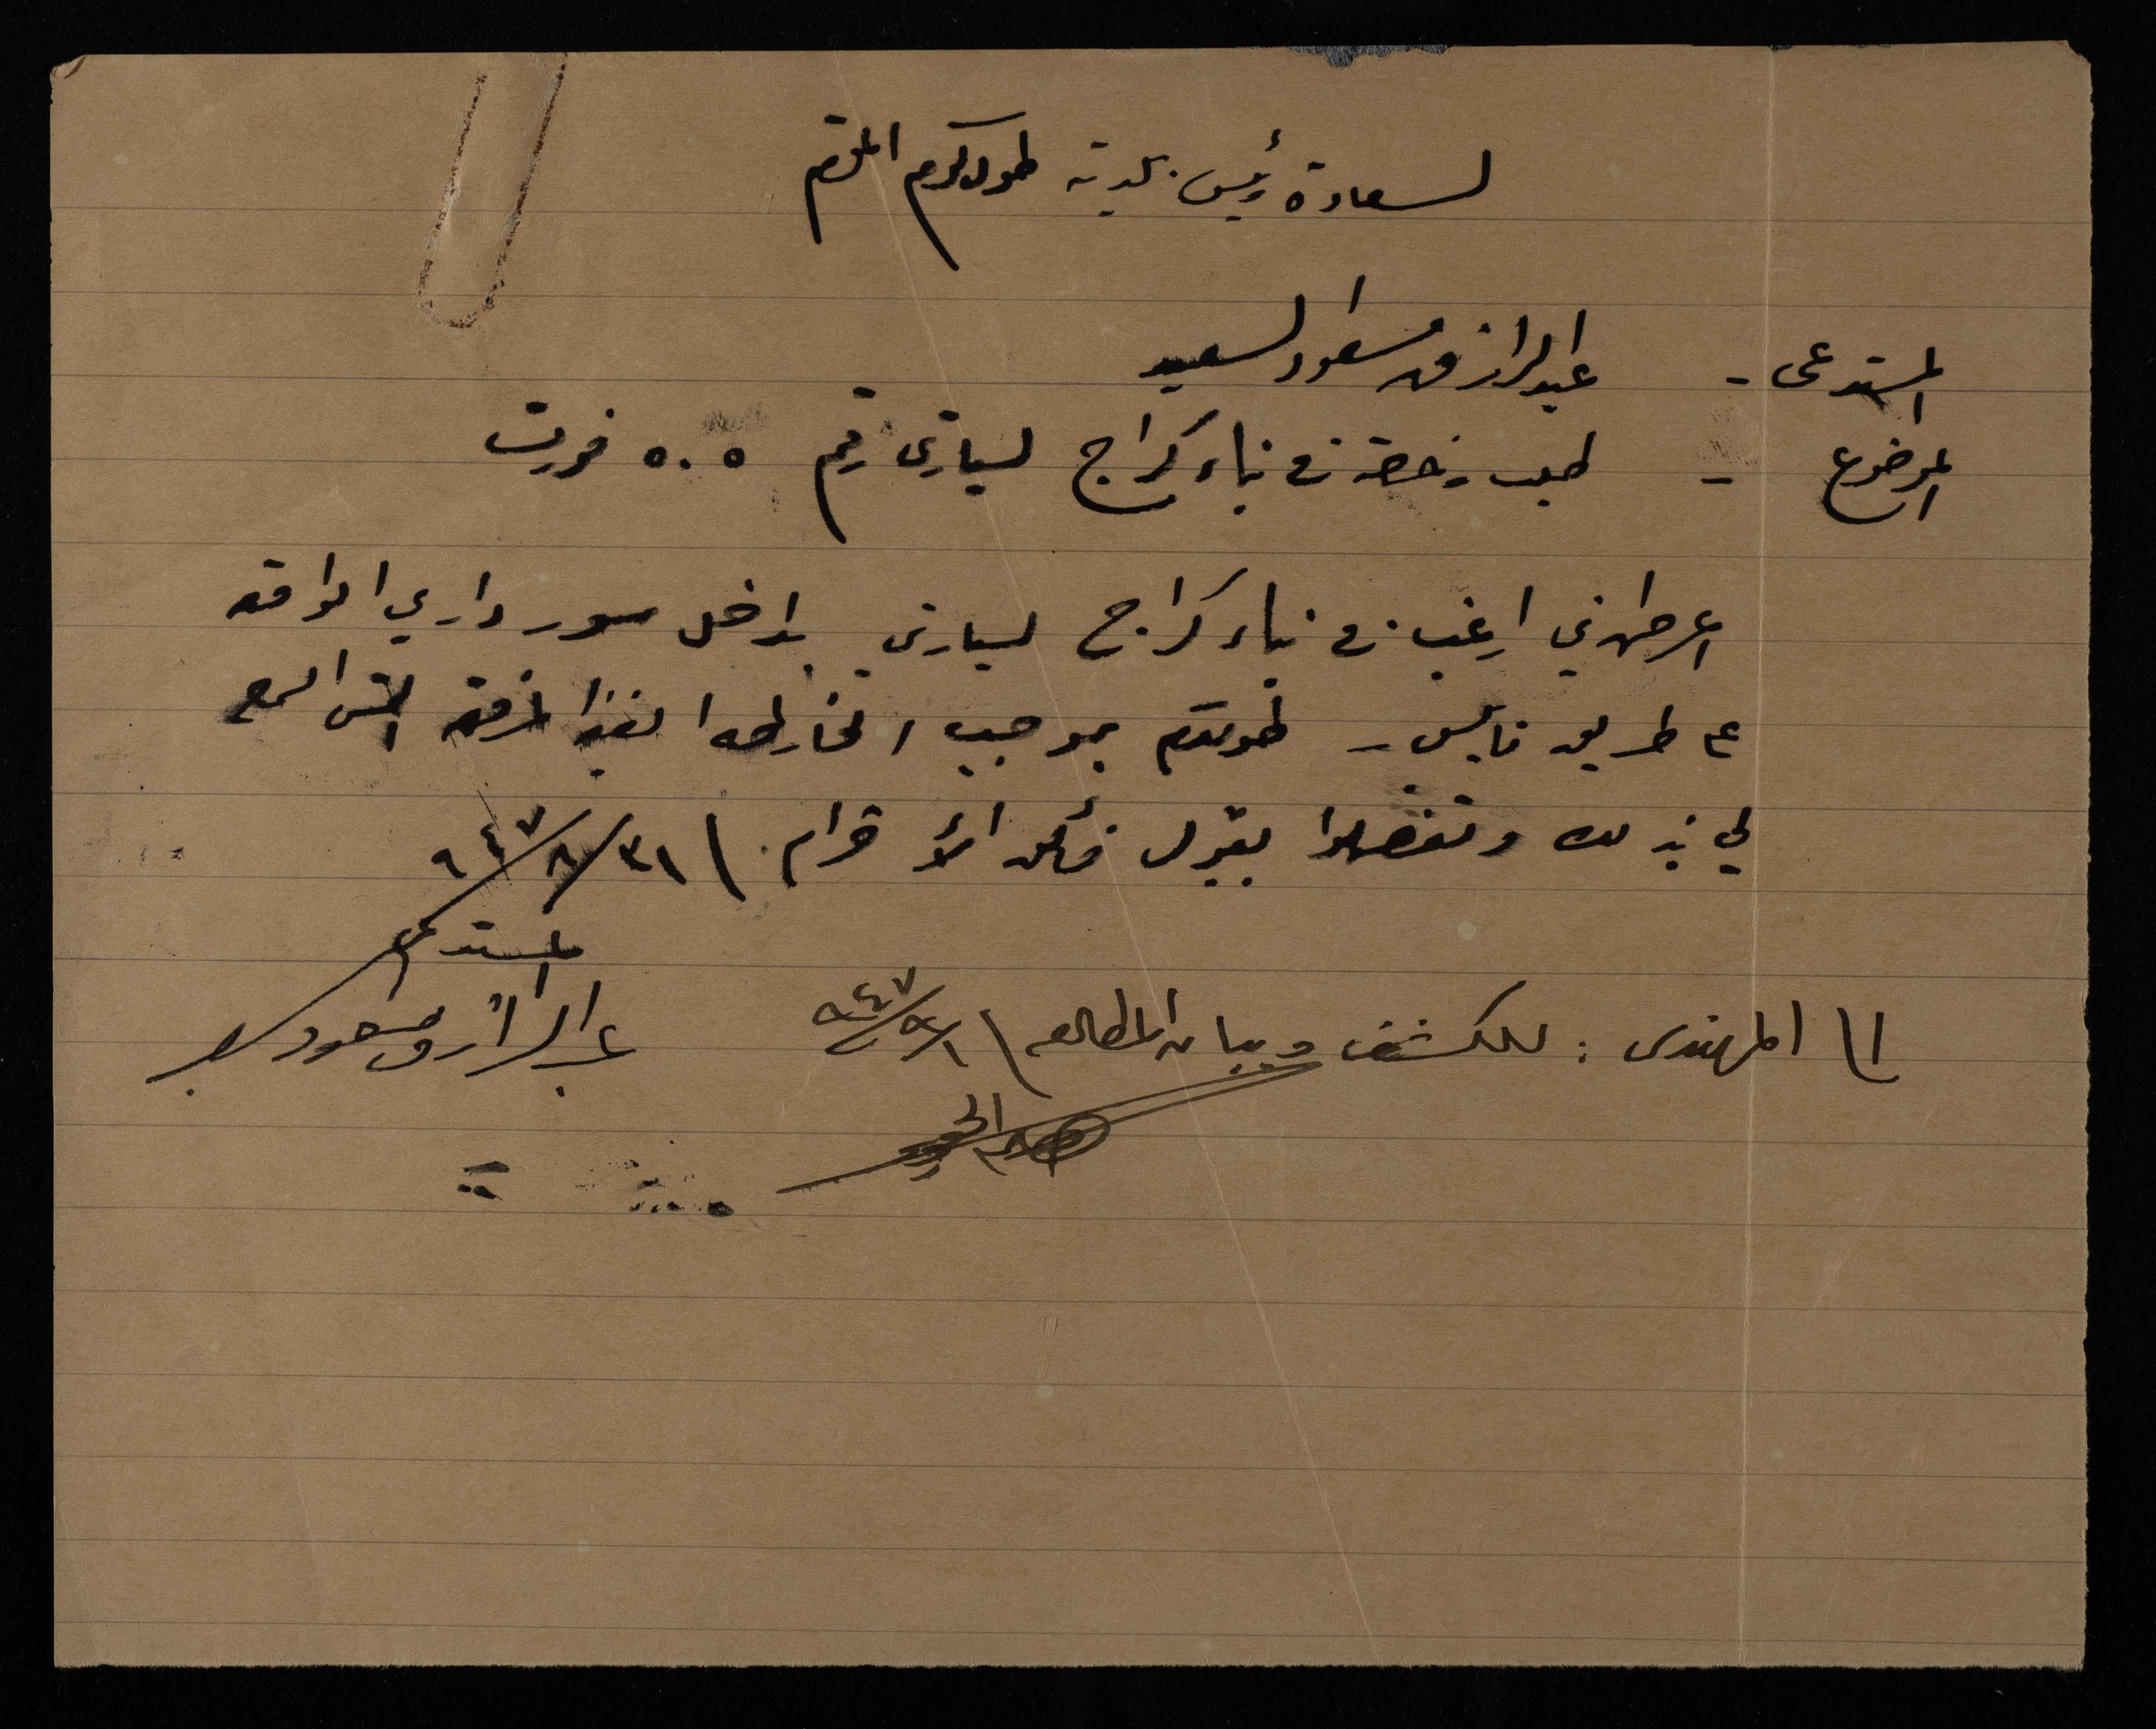 لسعادة رئيس بلدية طولكرم المحترم
المستدعى - عبد الرازق مسعود السعيد
الموضوع - طلب رخصة في بناء كراج لسيارتي رقم ٥٠٥ فورت
اعرض انني ارغب في بناء كراج لسيارتي بداخل سور داري الواقعه
على طريق نابلس - طولكرم بموجب الخارطه المرفقه التمس السماح
لي بذلك وتفضلوا بقبول فائق الأحترام \ ٣١/٨/٩٤٧
المستدعى
عبد الرازق مسعود
الى المهندس : للكشف وبيان المطالعه \ ١/٩/٩٤٧